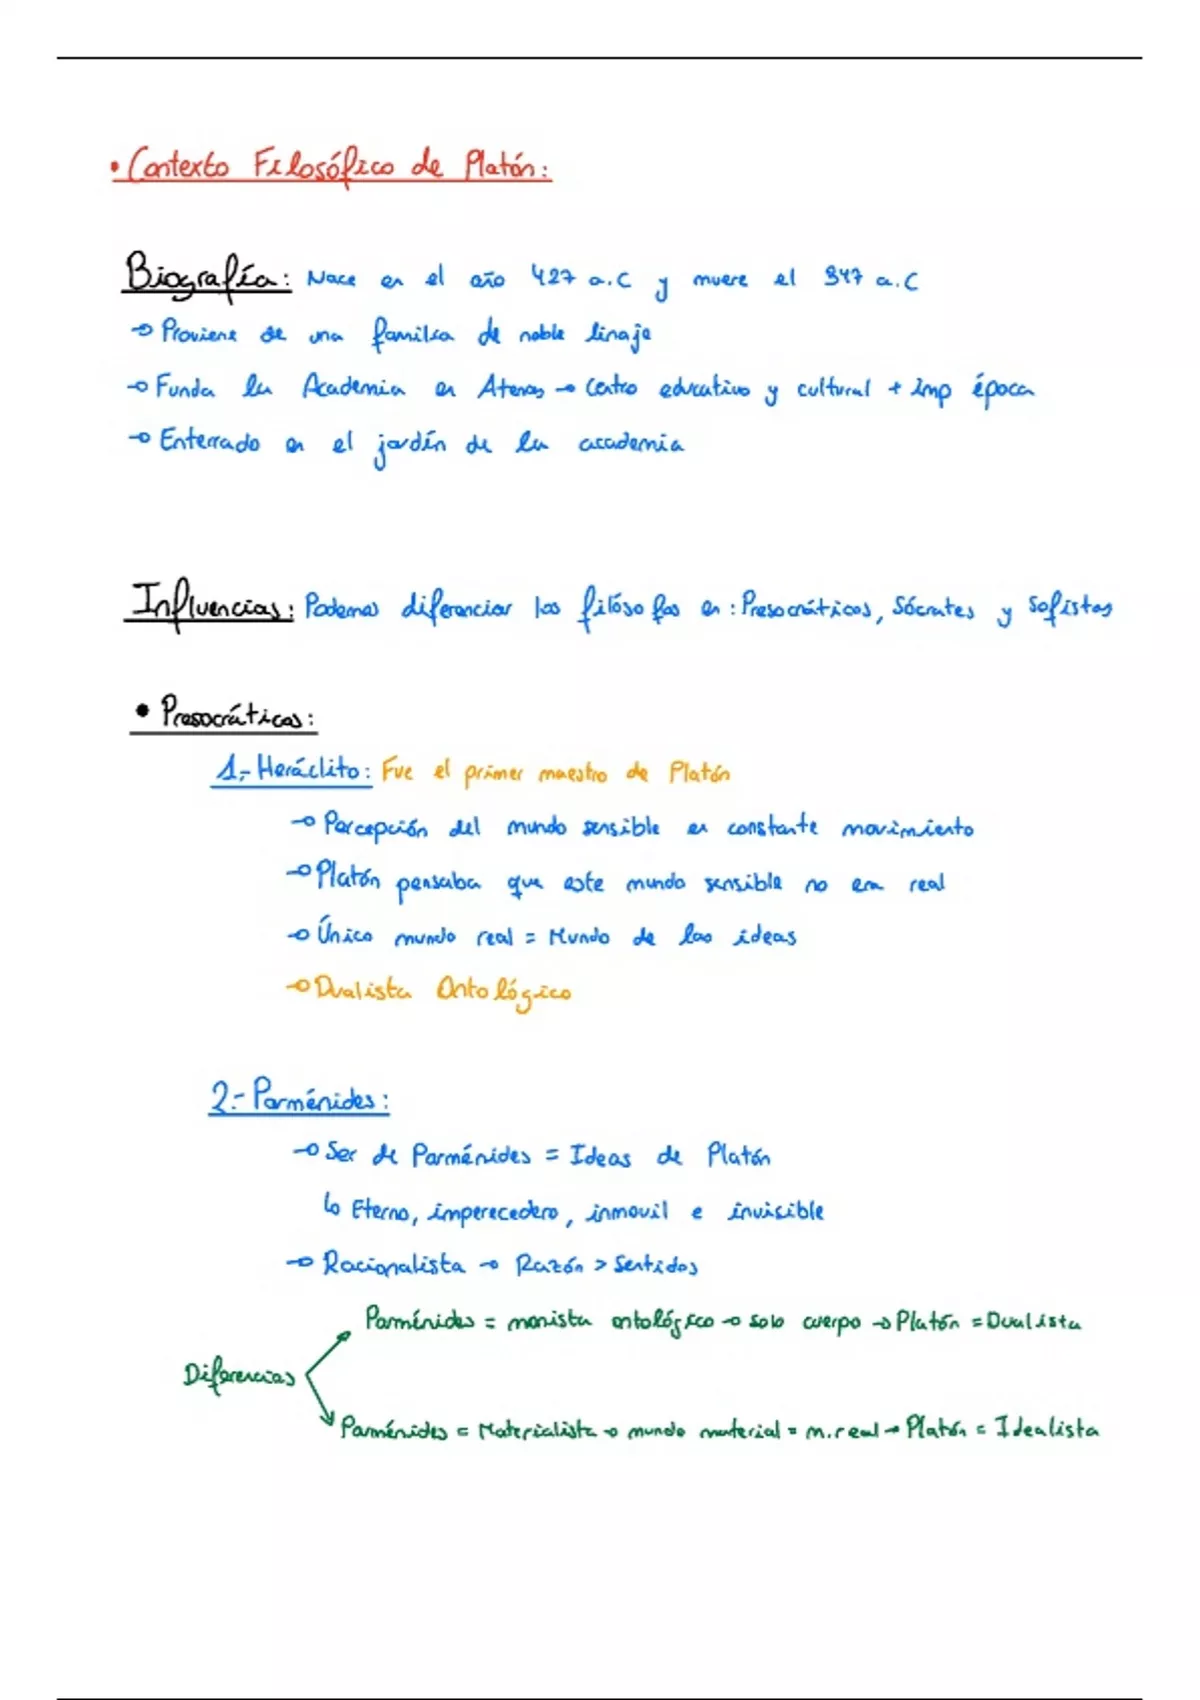 • Contexto Filosófico de Platón:
Biografía: Nace en el año 427 a.C y muere el 347 a.C
→ Proviene de una familia de noble linaje
→ Funda la Academia en Atenas → Centro educativo y cultural + imp época
→ Enterrado en el jardín de la academia
Influencias: Podemos diferenciar los filósofos en: Presocráticos, Sócrates y Sofistas
• Presocráticos:
1.- Heráclito: Fue el primer maestro de Platón
→ Percepción del mundo sensible en constante movimiento
→ Platón pensaba que este mundo sensible no era real
→ Único mundo real = Mundo de las ideas
→ Dualista Ontológico
2.- Parménides:
→ Ser de Parménides = Ideas de Platón
↳ Eterno, imperecedero, inmovil e invisible
→ Racionalista → Razón > Sentidos
Parménides = monista ontológico → solo cuerpo → Platón = Dualista
Diferencias
Parménides = Materialista → mundo material = m.real → Platón = Idealista